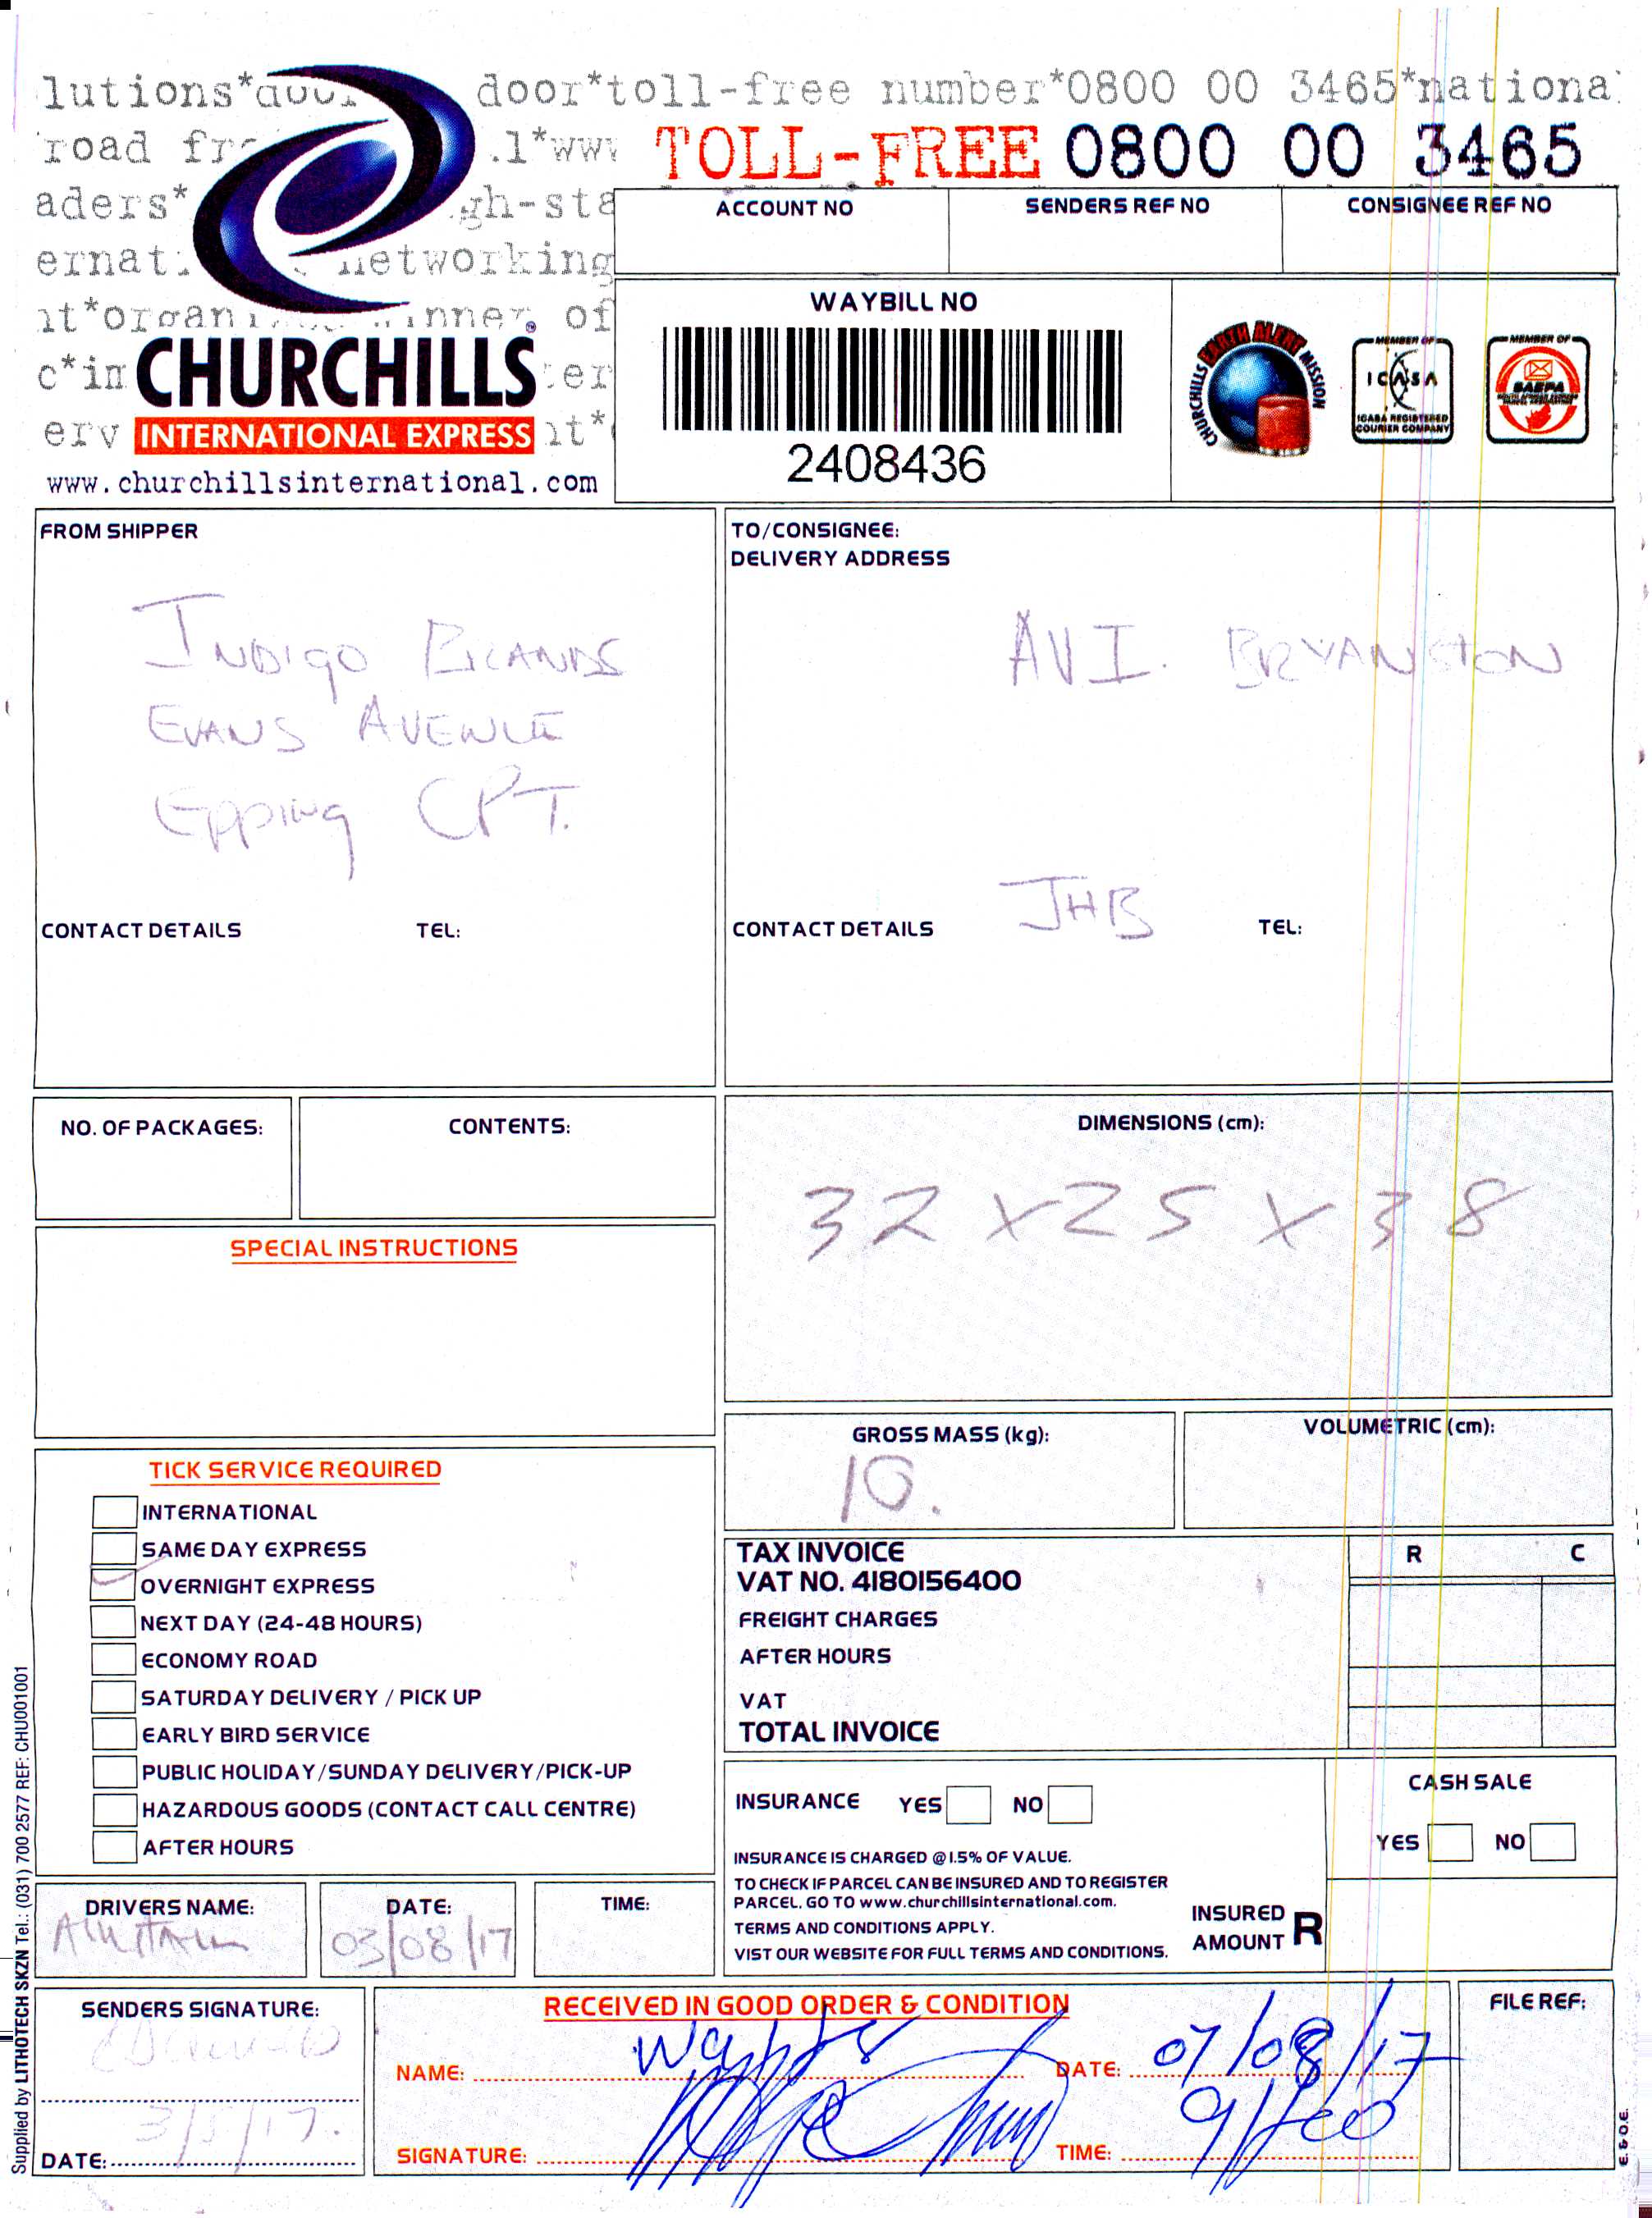 lutions* door*toll-free number*0800 00 3465*nationa
road .1*www
TOLL-FREE 0800 00 3465
aders* gh-sta
ernat networking
nt*organi inner of
c*in
erv nt*
CHURCHILLS
INTERNATIONAL EXPRESS
www.churchillsinternational.com
ACCOUNT NO SENDERS REF NO CONSIGNEE REF NO
WAYBILL NO
2408436
CHURCHILLS EARTH ALERT MISSION
MEMBER OF
ICASA
ICASA REGISTERED
COURIER COMPANY
MEMBER OF
SAEPA
FROM SHIPPER
INDIGO BRANDS
EVANS AVENUE
Epping CPT.
CONTACT DETAILS TEL:
TO/CONSIGNEE:
DELIVERY ADDRESS
AVI. BRYANSTON
JHB
CONTACT DETAILS TEL:
NO. OF PACKAGES: CONTENTS:
SPECIAL INSTRUCTIONS
DIMENSIONS (cm):
32 x 25 x 38
GROSS MASS (kg): VOLUMETRIC (cm):
10.
TICK SERVICE REQUIRED
INTERNATIONAL
SAME DAY EXPRESS
OVERNIGHT EXPRESS
NEXT DAY (24-48 HOURS)
ECONOMY ROAD
SATURDAY DELIVERY / PICK UP
EARLY BIRD SERVICE
PUBLIC HOLIDAY/SUNDAY DELIVERY/PICK-UP
HAZARDOUS GOODS (CONTACT CALL CENTRE)
AFTER HOURS
TAX INVOICE R C
VAT NO. 4180156400
FREIGHT CHARGES
AFTER HOURS
VAT
TOTAL INVOICE
INSURANCE YES NO
INSURANCE IS CHARGED @ 1.5% OF VALUE.
TO CHECK IF PARCEL CAN BE INSURED AND TO REGISTER
PARCEL, GO TO www.churchillsinternational.com.
TERMS AND CONDITIONS APPLY.
VIST OUR WEBSITE FOR FULL TERMS AND CONDITIONS.
INSURED
AMOUNT R
CASH SALE
YES NO
DRIVERS NAME: DATE: TIME:
03/08/17
SENDERS SIGNATURE:
3/8/17.
DATE:
RECEIVED IN GOOD ORDER & CONDITION
NAME: DATE: 07/08/17
SIGNATURE: TIME:
FILE REF:
E. & O.E.
Supplied by LITHOTECH SKZN Tel.: (031) 700 2577 REF: CHU001001